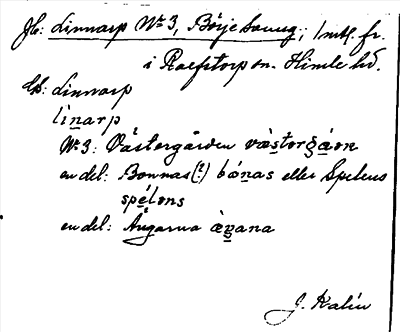 Jb: Linnarp Nr 3, Börje Soung; Inttl. fr.
i Roefstorp sn. Himle hd.
Ls: Linnarp
linarp
Nr 3: Västergården
en del: Bonnas(?) bónas eller Spelens
spélens
en del: Ängarna
J. Kalén